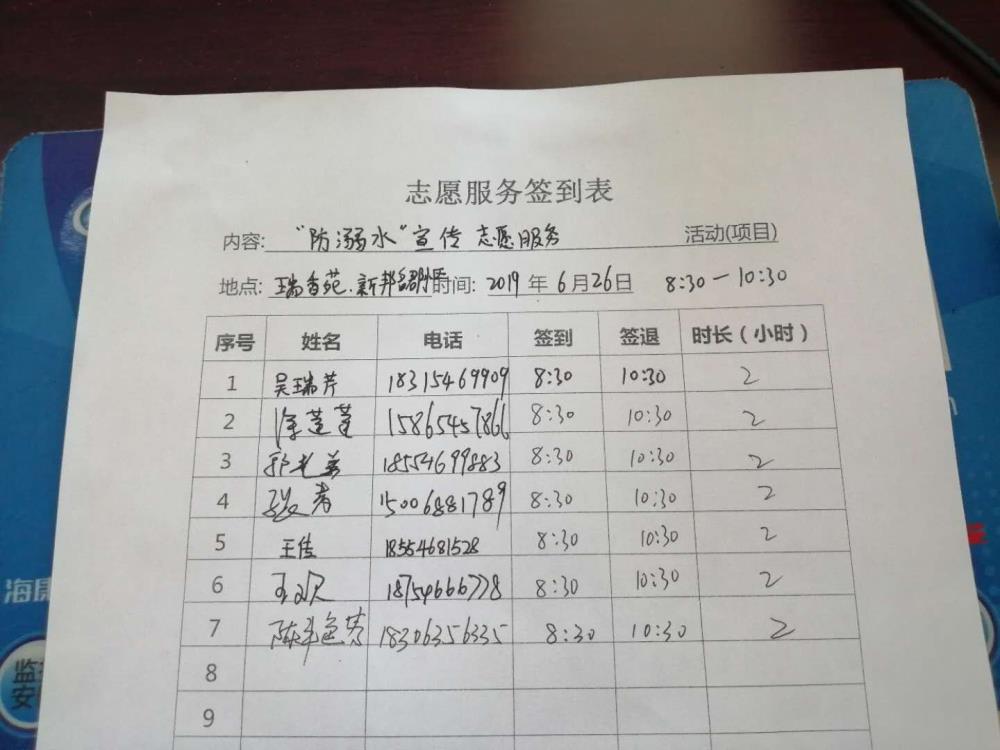 志愿服务签到表
内容: "防溺水"宣传 志愿服务 活动(项目)
地点: 瑞香苑.新邦 时间: 2019年6月26日 8:30-10:30
序号 姓名 电话 签到 签退 时长(小时)
1 吴瑞芹 18315469909 8:30 10:30 2
2 徐莲莲 15865457866 8:30 10:30 2
3 18554699883 8:30 10:30 2
4 15006881789 8:30 10:30 2
5 王佳 18554681528 8:30 10:30 2
6 18754666778 8:30 10:30 2
7 18306356335 8:30 10:30 2
8
9
海康
监
安